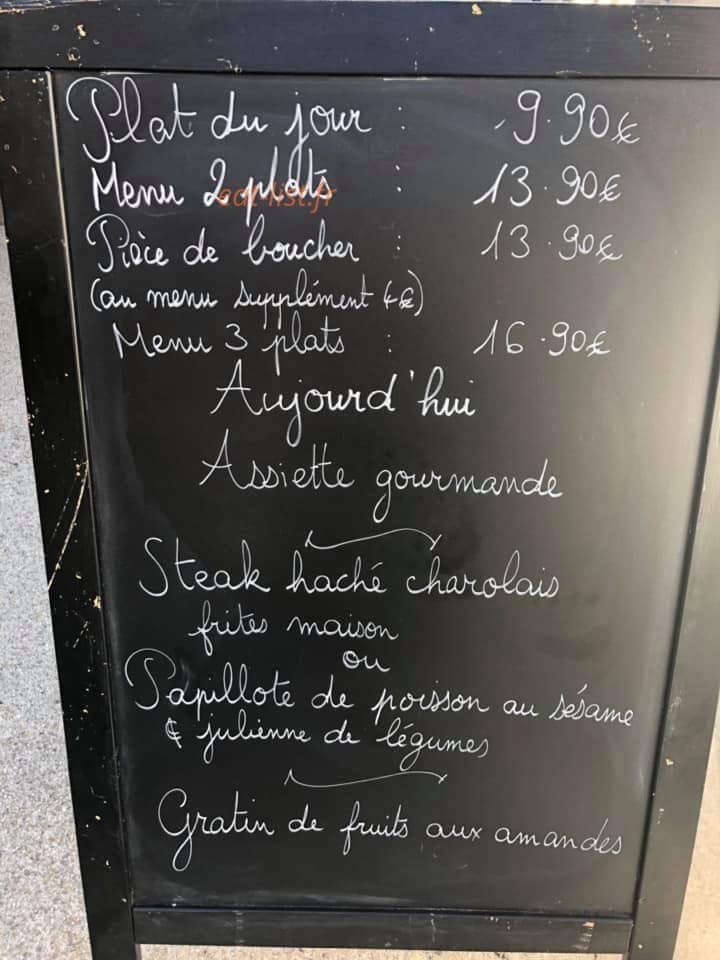 Plat du jour : 9.90€
Menu 2 plats : 13.90€
eat-list.fr
Pièce de boucher : 13.90€
(au menu supplément 4€)
Menu 3 plats : 16.90€
Aujourd'hui
Assiette gourmande
Steak haché charolais
frites maison
ou
Papillote de poisson au sésame
& julienne de légumes
Gratin de fruits aux amandes